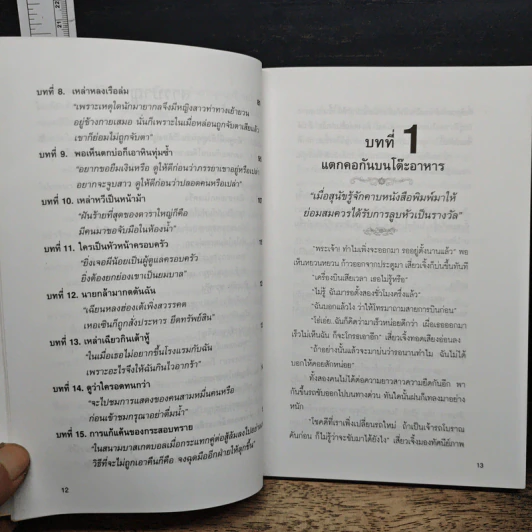 บทที่ 8. เหล่าหลงเรือล่ม
"เพราะเหตุใดนักมายากลจึงมีหญิงสาวท่าทางเย้ายวน
อยู่ข้างกายเสมอ นั่นก็เพราะในเมื่อหล่อนถูกจับตาเสียแล้ว
เขาก็ย่อมไม่ถูกจับตา"
บทที่ 9. พอเห็นตกบ่อก็เอาหินทุ่มซ้ำ
"อยากขอยืมเงินหรือ ดูให้ดีก่อนว่าภรรยาเขาอยู่หรือเปล่า
อยากจะจูบสาว ดูให้ดีก่อนว่าปลอดคนหรือเปล่า"
บทที่ 10. เหล่าหวีเป็นหน้าม้า
"ฝันร้ายที่สุดของดาราใหญ่ก็คือ
มีคนมาขอจับมือในห้องน้ำ"
บทที่ 11. ใครเป็นหัวหน้าครอบครัว
"ยิ่งเจอผีน้อยเป็นผู้ดูแลครอบครัว
ยิ่งต้องยกย่องเขาเป็นยมบาล"
บทที่ 12. นายกล้ามากดดันฉัน
"เฉียนหลงฮ่องเต้เพิ่งสวรรคต
เหอเซินก็ถูกสั่งประหาร ยึดทรัพย์สิน"
บทที่ 13. เหล่าเฉียวกินเต้าหู้
"ในเมื่อเธอไม่อยากขึ้นโรงแรมกับฉัน
เพราะอะไรจึงให้ฉันกินไวอากร้า"
บทที่ 14. ดูว่าใครอดทนกว่า
"จะไปชมการแสดงของคนสามหมื่นคนหรือ
ก่อนเข้าชมกรุณาอย่าดื่มน้ำ"
บทที่ 15. การแก้แค้นของกระสอบทราย
"ในสนามบาสเกตบอลเมื่อกระแทกคู่ต่อสู้ล้มลงไปอย่าง
วิธีที่จะไม่ถูกเอาคืนก็คือ จงฉุดมืออีกฝ่ายให้ลุกขึ้น"
12
บทที่ 1
แตกคอกันบนโต๊ะอาหาร
"เมื่อสุนัขรู้จักคาบหนังสือพิมพ์มาให้
ย่อมสมควรได้รับการลูบหัวเป็นรางวัล"
"พระเจ้า! ทำไมเพิ่งจะออกมา รออยู่ตั้งนานแล้ว" พอ
เห็นหยวนหยวน ก้าวออกจากประตูมา เสี่ยวเจิ้งก็บ่นขึ้นทันที
"เครื่องบินเสียเวลา เธอไม่รู้หรือ"
"ไม่รู้ ฉันมารอตั้งสองชั่วโมงครึ่งแล้ว"
"ฉันบอกแล้วไง ว่าให้โทรมาถามสายการบินก่อน"
"โธ่เอ๋ย..ฉันก็คิดว่ามาเร็วหน่อยดีกว่า เมื่อเธอออกมา
เร็วไม่เห็นฉัน ก็จะโกรธเอาอีก" เสี่ยวเจิ้งทอดเสียงอ่อนลง
"ถ้าอย่างนั้นแล้วจะมาบ่นว่ารอนานทำไม ฉันไม่ได้
บอกให้คอยสักหน่อย"
ทั้งสองคนไม่ได้ต่อความยาวสาวความยืดกันอีก พา
กันขึ้นรถขับออกไปบนทางด่วน ทันใดนั้นฝนก็เทลงมาอย่าง
หนัก
"โชคดีที่เราเพิ่งเปลี่ยนรถใหม่ ถ้าเป็นเจ้ารถโบราณ
คันก่อน ก็ไม่รู้ว่าจะขับมาได้ยังไง" เสี่ยวเจิ้งมองทัศนีย์ภาพ
13